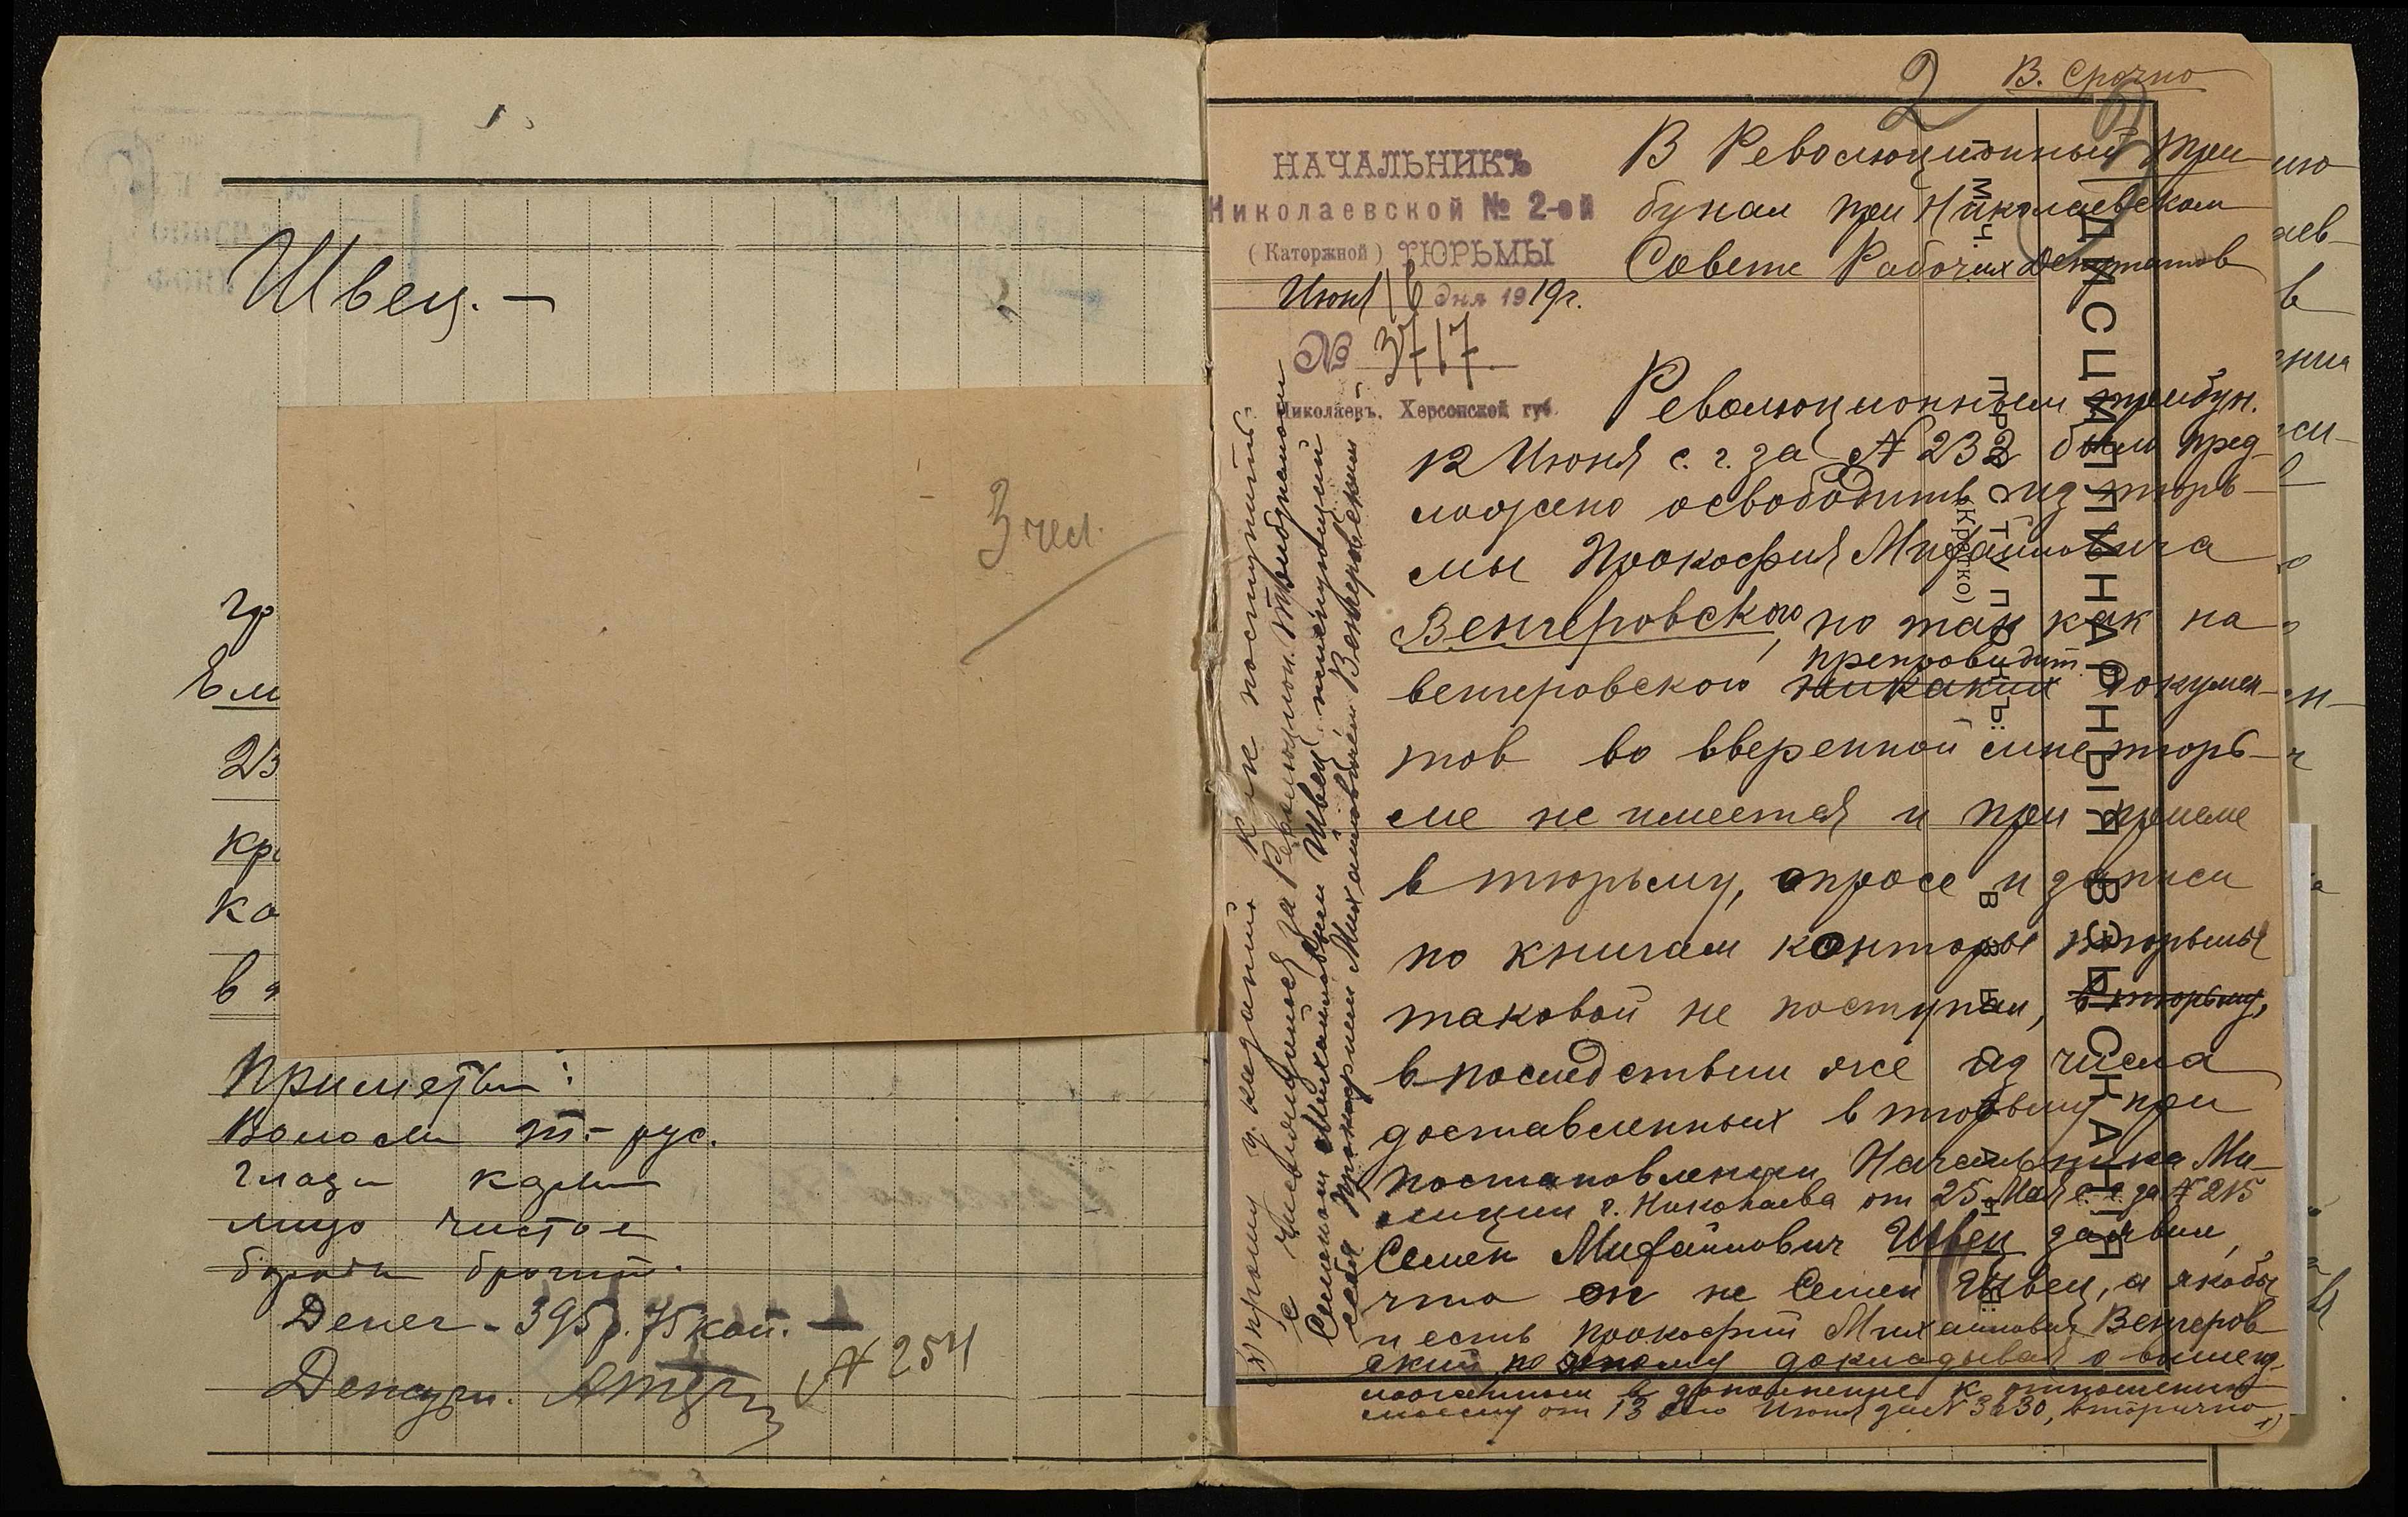 Швец. —
3 чел.
гр
Ем
23
кр
ка
в
Приметы:
Волосы т.-рус.
глаза карие
лицо чистое
борода
Денег - 395 р. 75 коп.
Дежурн.
№ 254
2
В. Срочно
НАЧАЛЬНИКЪ
Николаевской № 2-ой
(Каторжной) ТЮРЬМЫ
Июня 16 дня 1919 г.
№ 3717.
Николаевъ, Херсонской губ.
В Революционный Три-
бунал при Николаевском
Совете Рабочих Депутатов
Революционным трибун.
12 Июня с. г. за № 232 было пред-
ложено освободить из тюрь-
мы Прокофия Михайловича
Венгеровского, но так как на
венгеровского препроводит. никаких докумен-
тов во вверенной мне тюрь-
ме не имеется и при приеме
в тюрьму, опросе и записи
по книгам конторы тюрьмы
таковой не поступал, в тюрьму,
впоследствии же из числа
доставленных в тюрьму при
постановлении Начальника Ми-
лиции г. Николаева от 25 Мая с. г. за № 215
Семен Михайлович Швец заявил,
что он не Семен Швец, а якобы
и есть Прокофий Михайлович Венгеров-
ский, по этому докладывая о вышеиз-
ложенном в дополнение к отношению
моему от 13 сего Июня за № 3630, вторично
х) прошу указаний как поступить
с числящимся за Революцион. Трибуналом
Семеном Михайловым Швец, именующим
себя Прокофием Михайловичем Венгеровским. —
ДИСЦИПЛИНАРНЫЯ ВЗЫСКАНІЯ
М-ч.
ПРОСТУПОКЪ:
(Кратко)